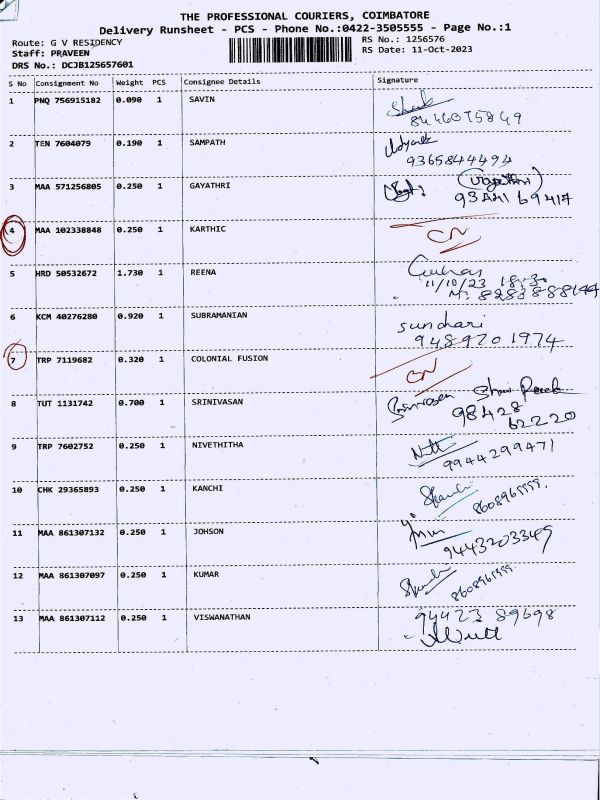 THE PROFESSIONAL COURIERS, COIMBATORE
Delivery Runsheet - PCS - Phone No.:0422-3505555 - Page No.:1
Route: G V RESIDENCY
RS No.: 1256576
Staff: PRAVEEN
RS Date: 11-Oct-2023
DRS No.: DCJB125657601
S No Consignment No Weight PCS Consignee Details Signature
1 PNQ 756915182 0.090 1 SAVIN
8446075849
2 TEN 7604079 0.190 1 SAMPATH
9365844494
3 MAA 571256805 0.250 1 GAYATHRI
93441 69414
4 MAA 102338848 0.250 1 KARTHIC CN
5 HRD 50532672 1.730 1 REENA
11/10/23 18:30
M: 8283888144
6 KCM 40276280 0.920 1 SUBRAMANIAN sundari
9489201974
7 TRP 7119682 0.320 1 COLONIAL FUSION CN
8 TUT 1131742 0.700 1 SRINIVASAN Srinivasan
98428
62220
9 TRP 7602752 0.250 1 NIVETHITHA
9944299471
10 CHK 29365893 0.250 1 KANCHI
8608965999.
11 MAA 861307132 0.250 1 JOHSON
9443203349
12 MAA 861307097 0.250 1 KUMAR
8608965999
13 MAA 861307112 0.250 1 VISWANATHAN 94423 89698